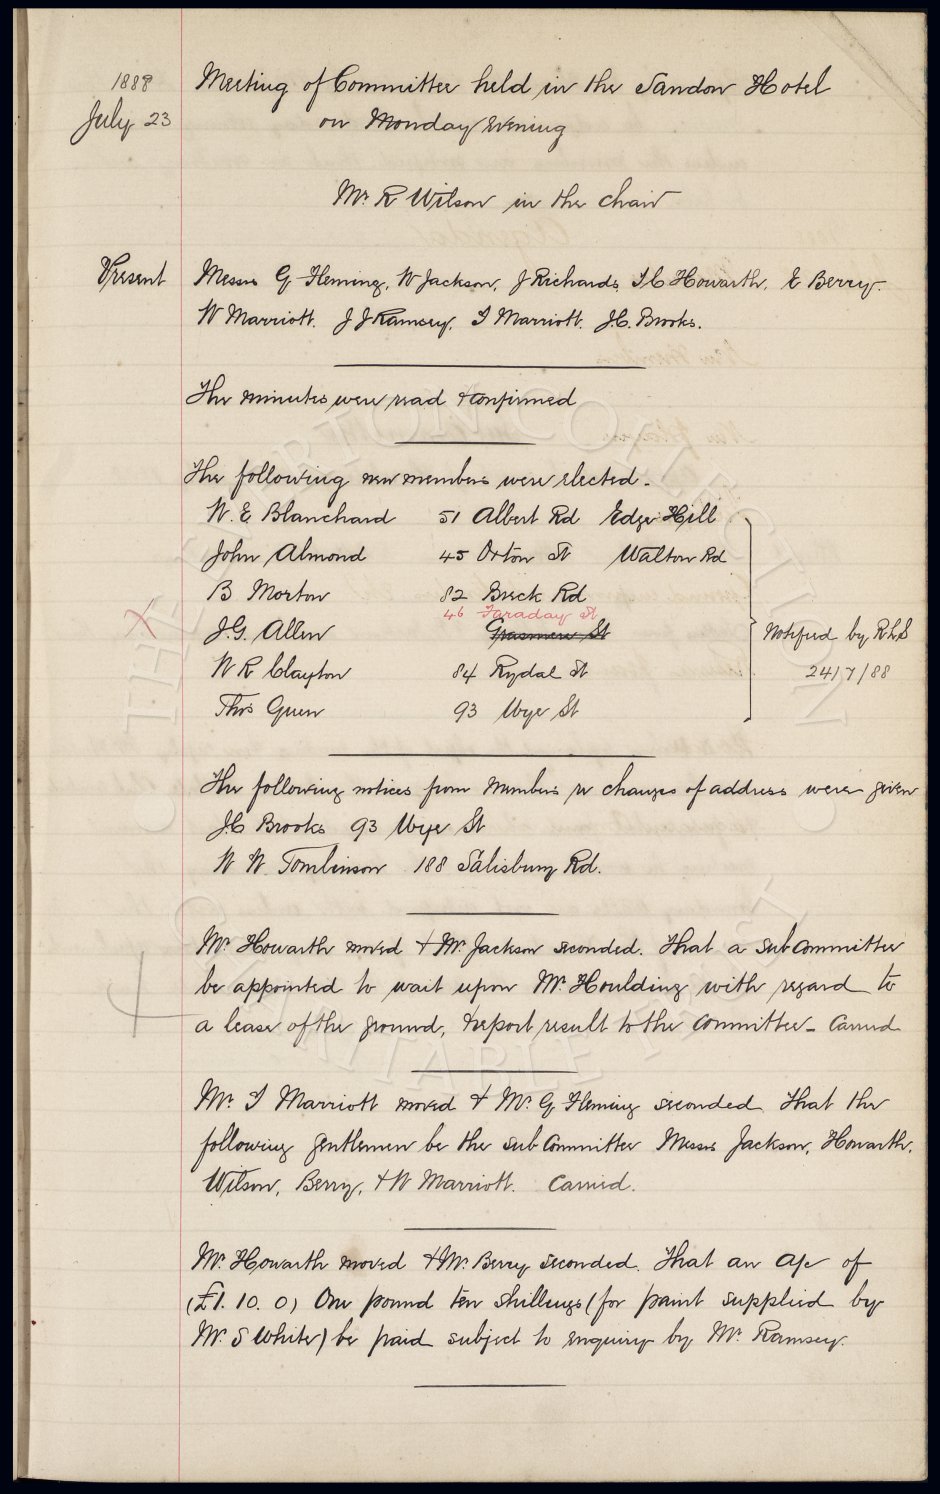 1888
July 23
Meeting of Committee held in the Sandon Hotel
on Monday Evening
Mr. R Wilson in the chair
Present
Messrs G Fleming, W Jackson, J Richards, T.C Howarth, E Berry.
W Marriott. J J Ramsey, T Marriott. J.C. Brooks.
The minutes were read & confirmed
The following new members were elected.
W. E Blanchard 51 Albert Rd Edge Hill
John Almond 45 Orton St Walton Rd
B Morton 82 Breck Rd
46 Faraday St
X J.G. Allen Grasmere St
W R Clayton 84 Rydal St
Thos Green 93 Wyer St
Notified by RLS
24/7/88
The following notices from members re changes of address were given
J.C Brooks 93 Wyer St
W W Tomlinson 188 Salisbury Rd.
Mr. Howarth moved & Mr. Jackson seconded. That a sub committee
be appointed to wait upon Mr. Houlding with regard to
a lease of the ground, & report result to the committee - Carried
Mr. T Marriott moved & Mr. G Fleming seconded That the
following gentlemen be the sub Committee Messrs Jackson, Howarth,
Wilson, Berry, & W Marriott. Carried.
Mr. Howarth moved & Mr. Berry seconded. That an a/c of
(£1. 10. 0) One pound ten shillings (for paint supplied by
Mr. S White) be paid subject to enquiry by Mr. Ramsey.
THE EVERTON COLLECTION
CHARITABLE TRUST